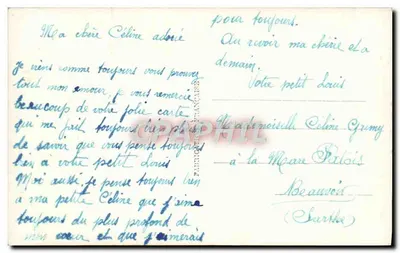 Ma chère Céline adoré
Je viens comme toujours vous prouver
tout mon amour, je vous remercie
beaucoup de votre jolie carte
qui me fait toujours bien plaisir
de savoir que vous pense toujours
bien à votre petit Louis
Moi aussi je pense toujours bien
a ma petite Céline que j'aime
toujours du plus profond de
mon cœur et que j'aimerais
pour toujours.
Au revoir ma chérie et a
demain.
Votre petit Louis
Mademoiselle Céline
à la Mare
Beauvoir